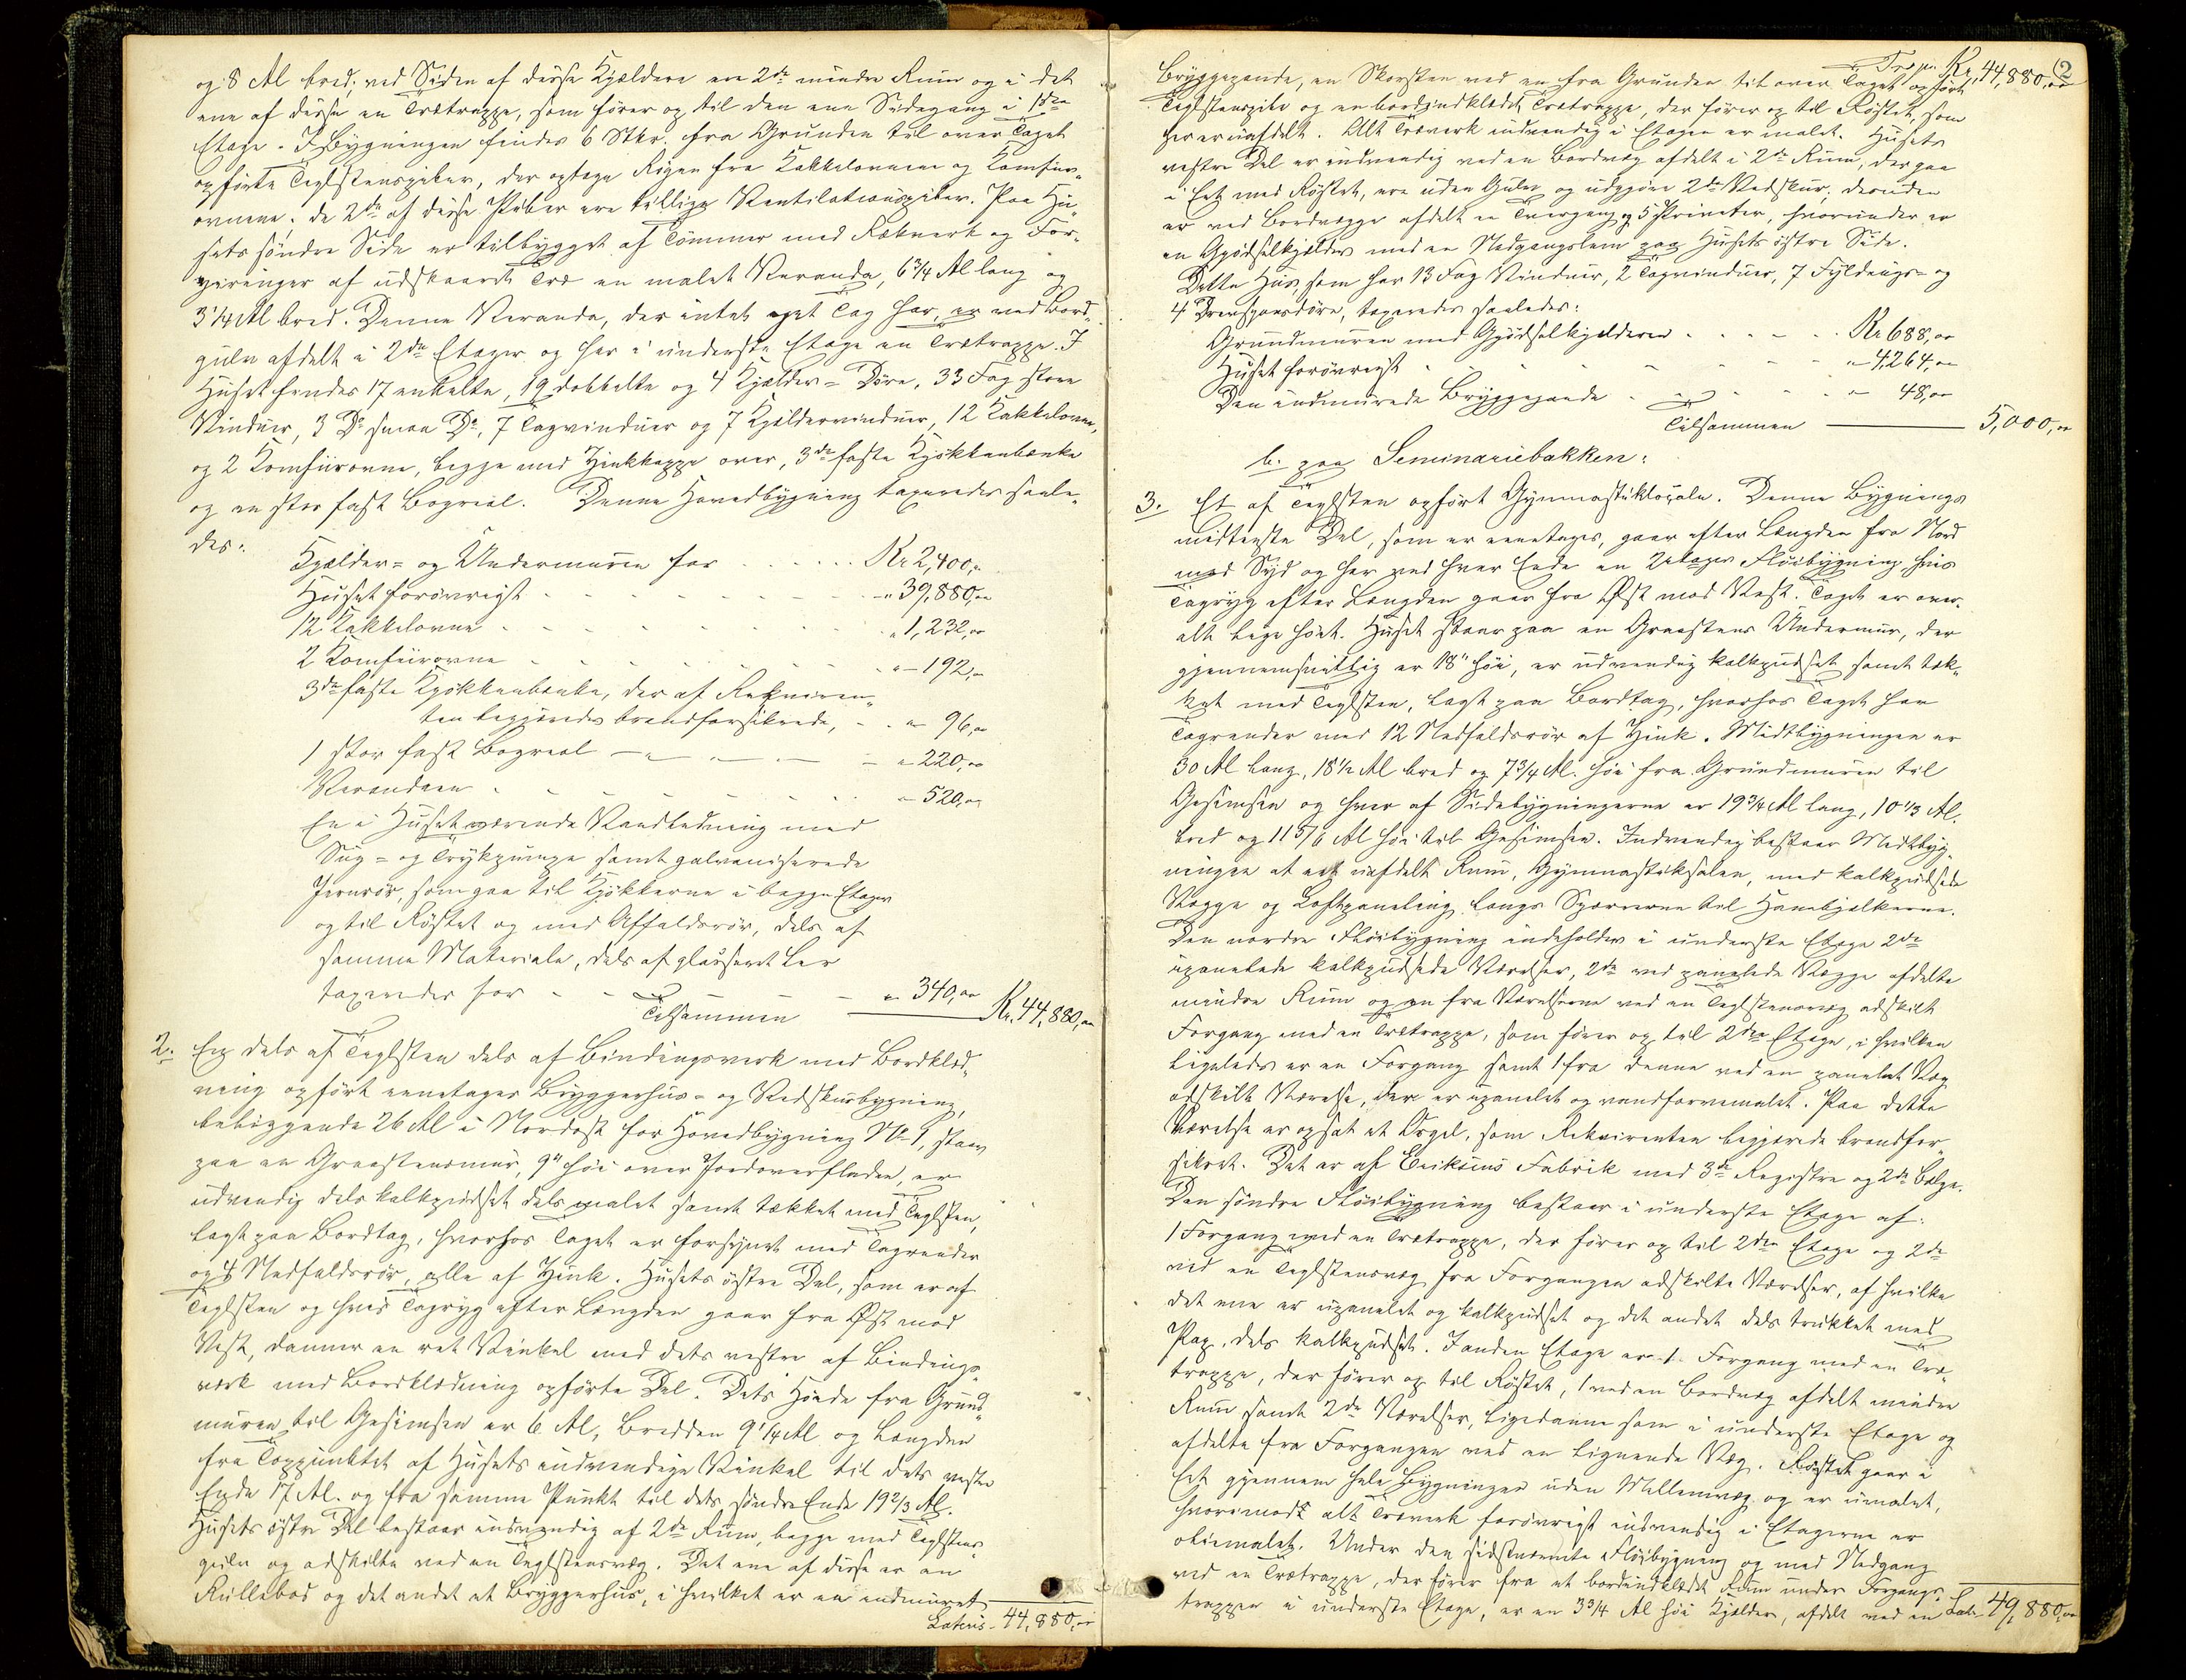 og 8 Al bred; ved Siden af disse Kjældere ere 2de mindre Rum og i det
ene af disse en Trætrappe, som fører op til den ene Sidegang i 1ste
Etage. I Bygningen findes 6 Stkr. fra Grunden til over Taget
opførte Teglstenspiber, der optage Røgen fra Kakkelovnene og Komfur-
ovnene; de 2de af disse Piber ere tillige Ventilationspiber. Paa Hu-
sets søndre Side er tilbygget af Tømmer med Rækverk og For-
ziringer af udskaaret Træ en malet Veranda, 6 3/4 Al lang og
3 1/4 Al bred. Denne Veranda, der intet eget Tag har, er ved Bord-
gulv afdelt i 2de Etager og har i underste Etage en Trætrappe. I
Huset findes 17 enkelte, 19 dobbelte og 4 Kjælder-Døre, 33 Fag store
Vinduer, 3 Do smaa Do, 7 Tagvinduer og 7 Kjældervinduer, 12 Kakkelovne,
og 2 Komfurovne, begge med Zinkkappe over, 3de faste Kjøkkenbænke
og en stor fast Bogreol. Denne Hovedbygning taxeredes saale-
des:
Kjælder- og Undermuren for . . . . . . Kr 2,400,„
Huset forøvrigt - - - - - - - „ 39,880,00
12 Kakkelovne - - - - - - - „ 1,232,00
2 Komfurovne - - - - - - - „ 192,„
3de faste Kjøkkenbænke, der af Rekviren-
ten begjæredes brandforsikrede, - . „ 96,00
1 stor fast Bogreol — „ — „ — „ 220,00
Verandaen - - - - - - - „ 520,00
En i Huset værende Vandledning med
Sug- og Trykpumpe samt galvaniserede
Jernrør, som gaa til Kjøkkerne i begge Etager
og til Røstet og med Affaldsrør, dels af
samme Materiale, dels af glasseret Ler
taxeredes for - - - - - „ 340,00
Tilsammen ——— Kr. 44,880,00
2. En dels af Teglsten dels af Bindingsverk med Bordklæd-
ning opført eenetages Bryggerhus- og Vedskursbygning,
beliggende 26 Al i Nordost for Hovedbygning No 1, staar
paa en Graastensmur, 9" høi over Jordoverfladen, er
udvendig dels kalkpudset dels malet samt tækket med Teglsten,
lagt paa Bordtag, hvorhos Taget er forsynet med Tagrender
og 4 Nedfaldsrør, alle af Zink. Husets østre Del, som er af
Teglsten og hvis Tagryg efter Længden gaar fra Øst mod
Vest, danner en ret Vinkel med dets vestre af Bindings-
verk med Bordklædning opførte Del. Dets Høide fra Grund-
muren til Gesimsen er 6 Al, Bredden 9 1/4 Al og Længden
fra Toppunktet af Husets indvendige Vinkel til dets vestre
Ende 17 Al. og fra samme Punkt til dets søndre Ende 19 2/3 Al.
Husets østre Del bestaar indvendig af 2de Rum, begge med Teglstens-
gulv og adskilte ved en Teglstensvæg. Det ene af disse er en
Rullebod og det andet et Bryggerhus, i hvilket er en indmuret
Lateris - 44,880,00
2
Trsp. Kr. 44,880,00
Bryggepande, en Skorsten med en fra Grunden til over Taget opført
Teglstenspibe og en bordindklædt Trætrappe, der fører op til Røstet, som
her er uafdelt. Alt Træverk indvendig i Etagen er malet. Husets
vestre Del er indvendig ved en Bordvæg afdelt i 2de Rum, der gaa
i Eet med Røstet, ere uden Gulv og udgjøre 2de Vedskur; desuden
er ved Bordvægge afdelt en Tvergang og 5 Priveter, hvorunder er
en Gjødselkjælder med en Nedgangslem paa Husets østre Side.
Dette Hus, som har 13 Fag Vinduer, 2 Tagvinduer, 7 Fyldings- og
4 Tverspansdøre, taxeredes saaledes:
Grundmuren med Gjødselkjælderen . . . - - . Kr 688,00
Huset forøvrigt - - - - - - „ 4,264,00
Den indmurede Bryggepande - - - - „ 48,00
Tilsammen ——— 5,000,00
b. paa Seminariebakken:
3. Et af Teglsten opført Gymnastiklokale. Denne Bygnings
midterste Del, som er eenetages, gaar efter Længden fra Nord
mod Syd og har ved hver Ende en 2etages Fløibygning, hvis
Tagryg efter Længden gaar fra Øst mod Vest. Taget er over-
alt lige høit. Huset staar paa en Graastens Undermur, der
gjennemsnittlig er 18" høi, er udvendig kalkpudset samt tæk-
ket med Teglsten, lagt paa Bordtag, hvorhos Taget har
Tagrender med 12 Nedfaldsrør af Zink. Midtbygningen er
30 Al lang, 18 1/2 Al bred og 7 3/4 Al. høi fra Grundmuren til
Gesimsen og hver af Sidebygningerne er 19 3/4 Al lang, 10 1/3 Al.
bred og 11 5/6 Al høi til Gesimsen. Indvendig bestaar Midtbyg-
ningen af eet uafdelt Rum, Gymnastiksalen, med kalkpudsede
Vægge og Loftpaneling langs Sperrerne til Hanebjælkerne.
Den nordre Fløibygning indeholder i underste Etage 2de
upanelede kalkpudsede Værelser, 2de ved panelede Vægge afdelte
mindre Rum og en fra Værelserne ved en Teglstensvæg adskilt
Forgang med en Trætrappe, som fører op til 2den Etage, i hvilken
ligeledes er en Forgang samt 1 fra denne ved en panelet Væg
adskilt Værelse, der er upanelet og vandfarvemalet. Paa dette
Værelse er opsat et Orgel, som Rekvirenten begjærede brandfor-
sikret. Det er af Eriksens Fabrik med 3de Registre og 2de Bælge.
Den søndre Fløibygning bestaar i underste Etage af:
1 Forgang med en Trætrappe, der fører op til 2den Etage og 2de
ved en Teglstensvæg fra Forgangen adskilte Værelser, af hvilke
det ene er upanelet og kalkpudset og det andet dels trukket med
Pap, dels kalkpudset. I anden Etage er 1 Forgang med en Træ-
trappe, der fører op til Røstet, 1 ved en Bordvæg afdelt mindre
Rum samt 2de Værelser, ligedanne som i underste Etage og
afdelte fra Forgangen ved en lignende Væg. Røstet gaar i
Eet gjennem hele Bygningen uden Mellemvæg og er umalet,
hvorimod alt Træverk forøvrigt indvendig i Etagerne er
oliemalet. Under den sidstnævnte Fløibygning og med Nedgang
ved en Trætrappe, der fører fra et bordindklædt Rum under Forgangs-
trappen i underste Etage, er en 3 3/4 Al høi Kjælder, afdelt ved en
Lat. 49,880,00